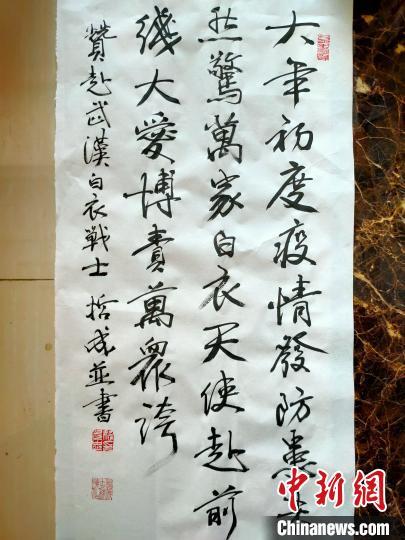 大年初度疫情發防患
然驚萬家白衣天使赴前
綫大愛博萬眾誇
贊赴武漢白衣戰士 哲成並書
中新網
www.chinanews.com